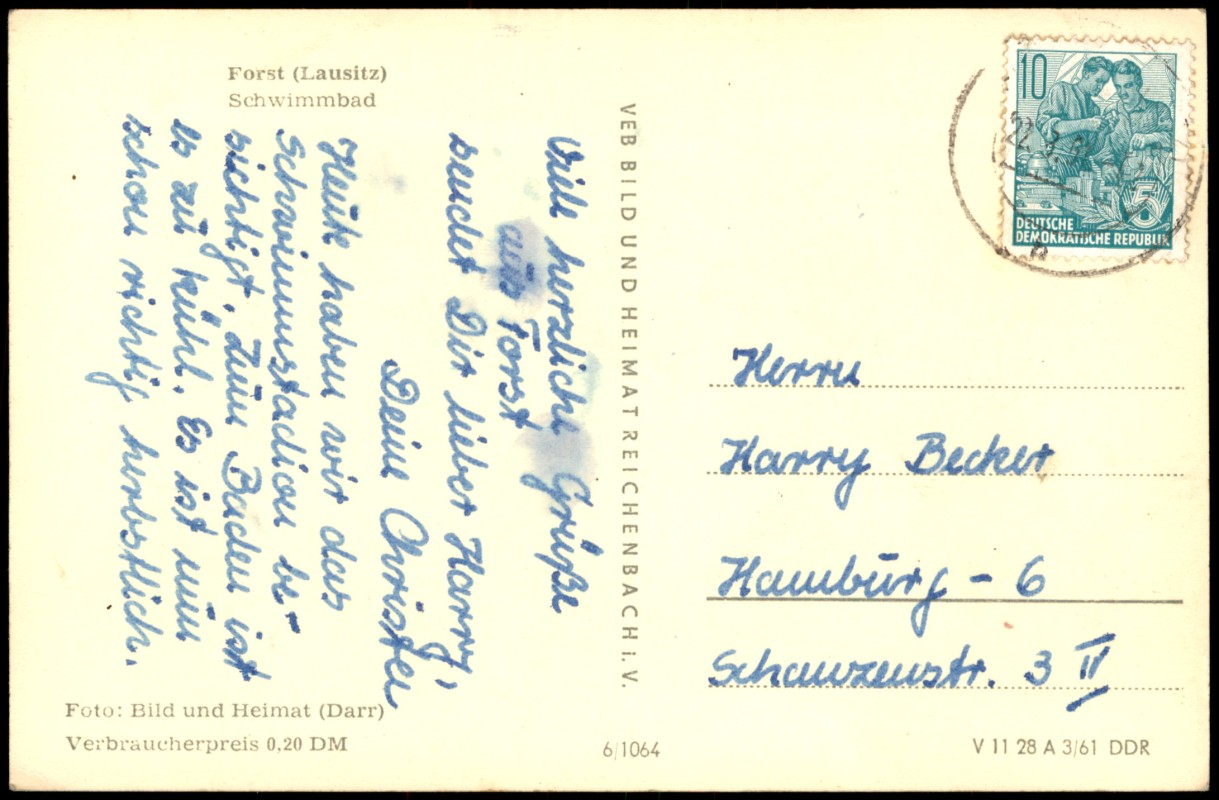 Forst (Lausitz)
Schwimmbad
Viele herzliche Grüße
aus Forst
sendet Dir lieber Harry,
Deine Christel
Heute haben wir das
Schwimmstadion be-
sichtigt. Zum Baden ist
es zu kühl. Es ist nun
schon richtig herbstlich.
Foto: Bild und Heimat (Darr)
Verbraucherpreis 0,20 DM
VEB BILD UND HEIMAT REICHENBACH i. V.
6/1064
10
DEUTSCHE
DEMOKRATISCHE REPUBLIK
5
Herrn
Harry Becker
Hamburg - 6
Schanzenstr. 3 II
V 11 28 A 3/61 DDR